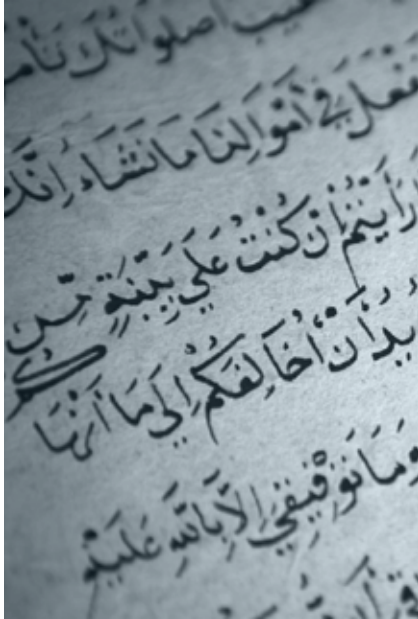 اَصَلَوَاتُكَ
نَفْعَلَ فِي أَمْوَالِنَا مَا نَشَاءُ اِنَّكَ
رَأَيْتُمْ إِنْ كُنْتُ عَلَي بَيِّنَةٍ مِّنْ
يدُ أَنْ أُخَالِفَكُمْ إِلَي مَا أَنْهَاكُمْ
وَمَا تَوْفِيقِي إِلاَّ بِاللَّهِ عَلَيْهِ